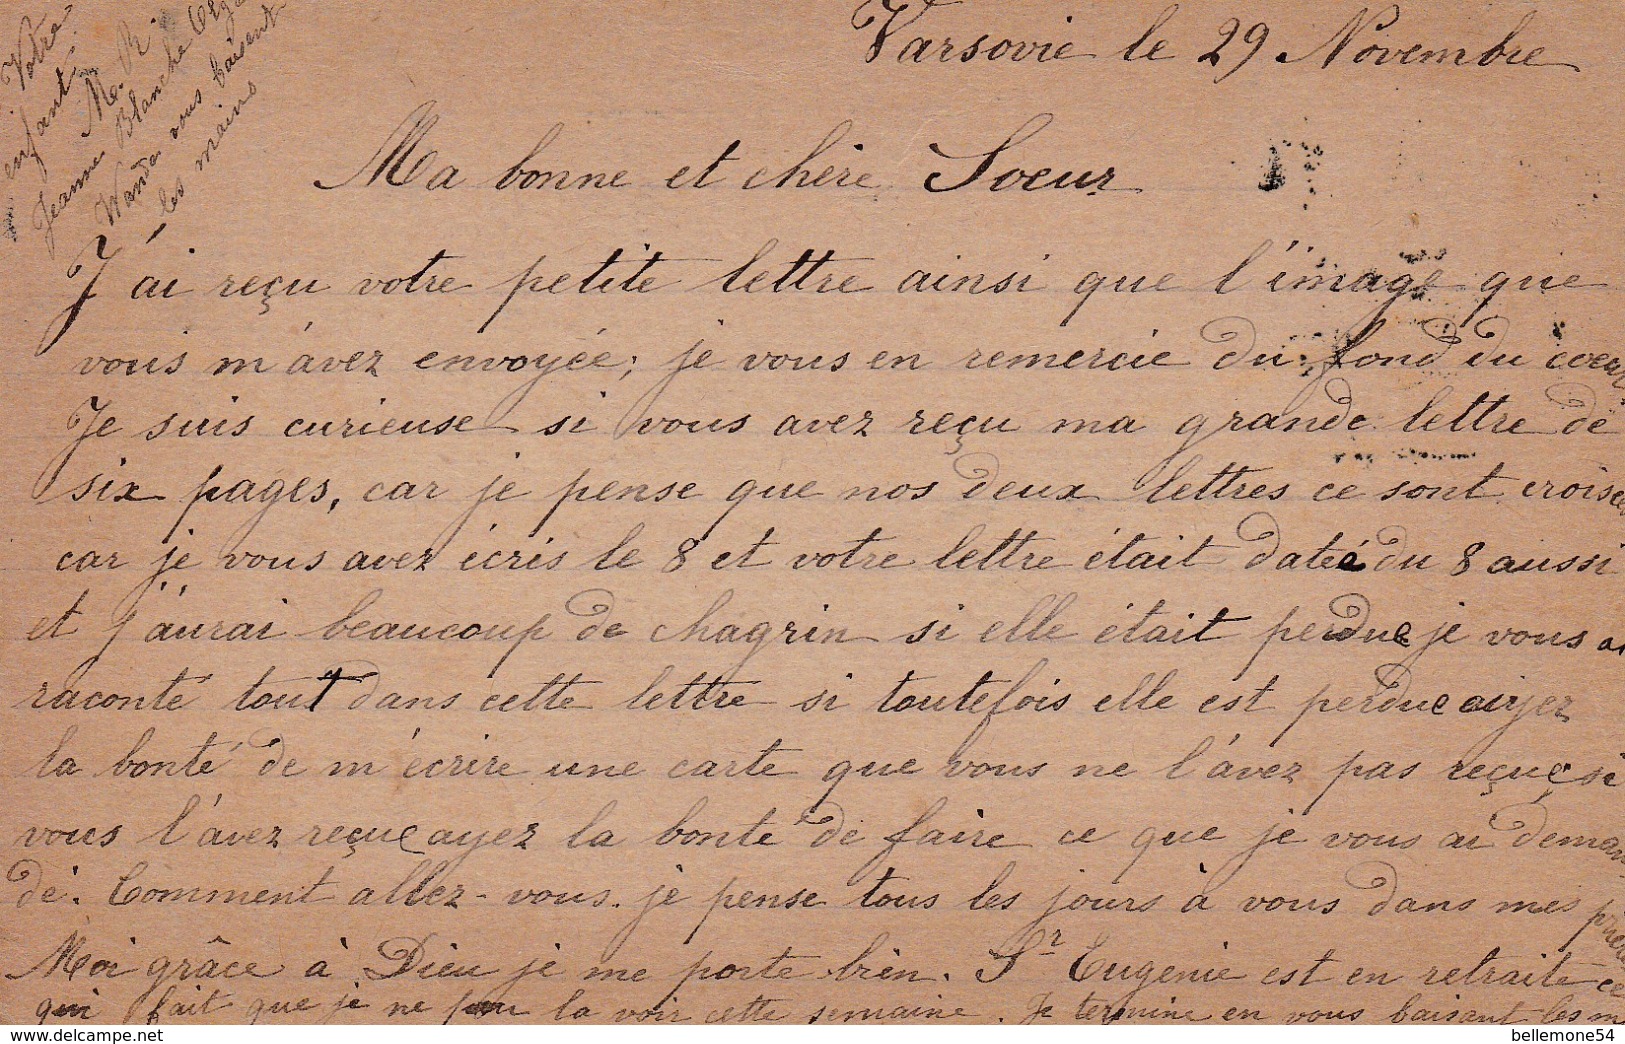 Varsovie le 29 Novembre
Ma bonne et chère Soeur
J'ai reçu votre petite lettre ainsi que l'image que
vous m'avez envoyée; je vous en remercie du fond du coeur.
Je suis curieuse si vous avez reçu ma grande lettre de
six pages, car je pense que nos deux lettres ce sont croisée
car je vous avez écris le 8 et votre lettre était datée du 8 aussi
et j'aurai beaucoup de chagrin si elle était perdue je vous ai
raconté tout dans cette lettre si toutefois elle est perdue ayez
la bonté de m'écrire une carte que vous ne l'avez pas reçue, si
vous l'avez reçue ayez la bonté de faire ce que je vous ai deman
dé. Comment allez-vous. je pense tous les jours à vous dans mes prière
Moi grâce à Dieu je me porte bien. Sr Eugenie est en retraite ce
qui fait que je ne la voir cette semaine. Je termine en vous baisant les m
Votre
enfant
M. R.
Jeanne Blanche
Wanda vous baisent
les mains
bellemone54